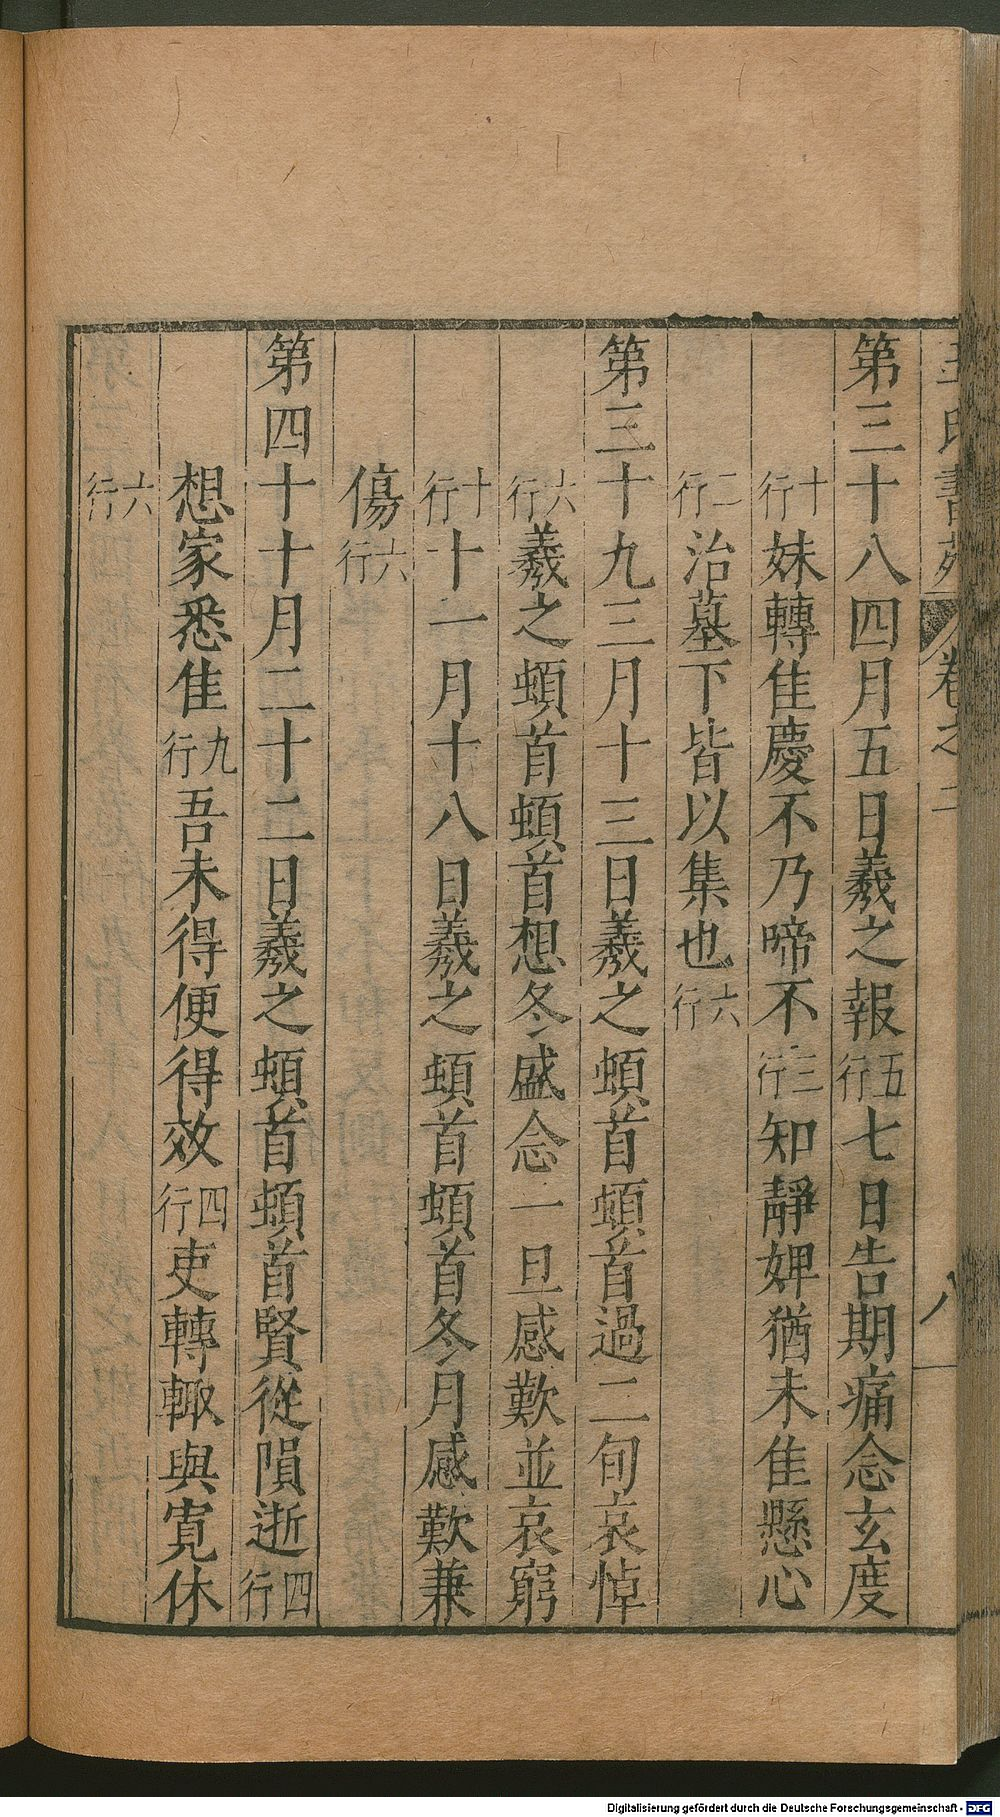 第三十八四月五日羲之報五行七日告期痛念玄度
十行妹轉佳慶不乃啼不三行知靜婢猶未佳懸心
二行治墓下皆以集也六行
第三十九三月十三日羲之頓首頓首過二旬哀悼
六行羲之頓首頓首想冬盛念一旦感歎並哀窮
十行十一月十八日羲之頓首頓首冬月感歎兼
傷六行
第四十十月二十二日羲之頓首頓首賢從隕逝四行
想家悉佳九行吾未得便得效四行吏轉輙與寛休
六行
王氏書苑 卷之二 八
Digitalisierung gefördert durch die Deutsche Forschungsgemeinschaft - DFG